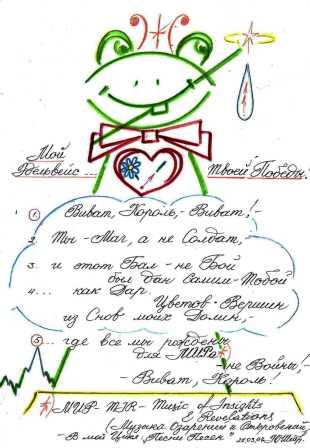 Мой
Эдельвейс... Твоей Победы!
1. Виват, Король,- Виват!-
2. Ты - Маг, а не Солдат,
3. и этот Бал - не Бой
был дан Самим-Тобой
4... как Дар.
Цветов-Вершин
из Снов моих Долин,-
5... где все мы рождены
для МИРа
- не Войны!-
- Виват, Король!
МИР - MIR - Music of Insights
& Revelations
(Музыка Озарений и Откровений)
- В мой Цикл "Песни Песен"